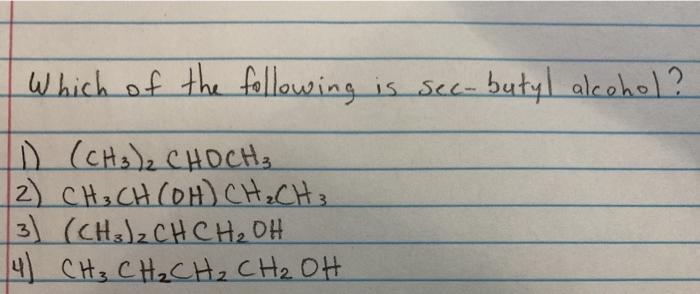 Which of the following is sec-butyl alcohol?
1) (CH₃)₂ CHOCH₃
2) CH₃CH(OH)CH₂CH₃
3) (CH₃)₂CHCH₂OH
4) CH₃CH₂CH₂CH₂OH